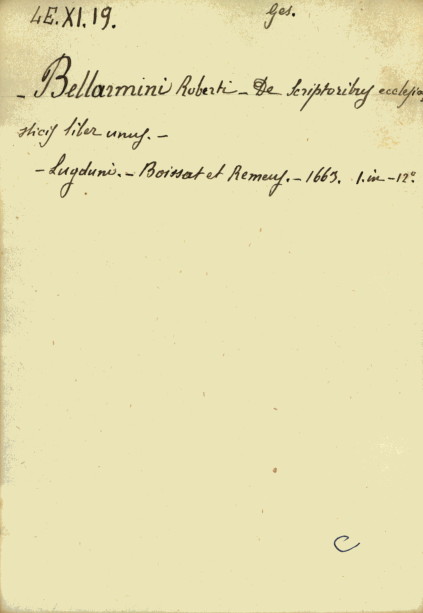 4E.XI.19. Ges.
- Bellarmini Roberti - De Scriptoribus ecclesia
sticis liber unus. -
- Lugduni. - Boissat et Remeus. - 1663. 1. in - 12°.
C